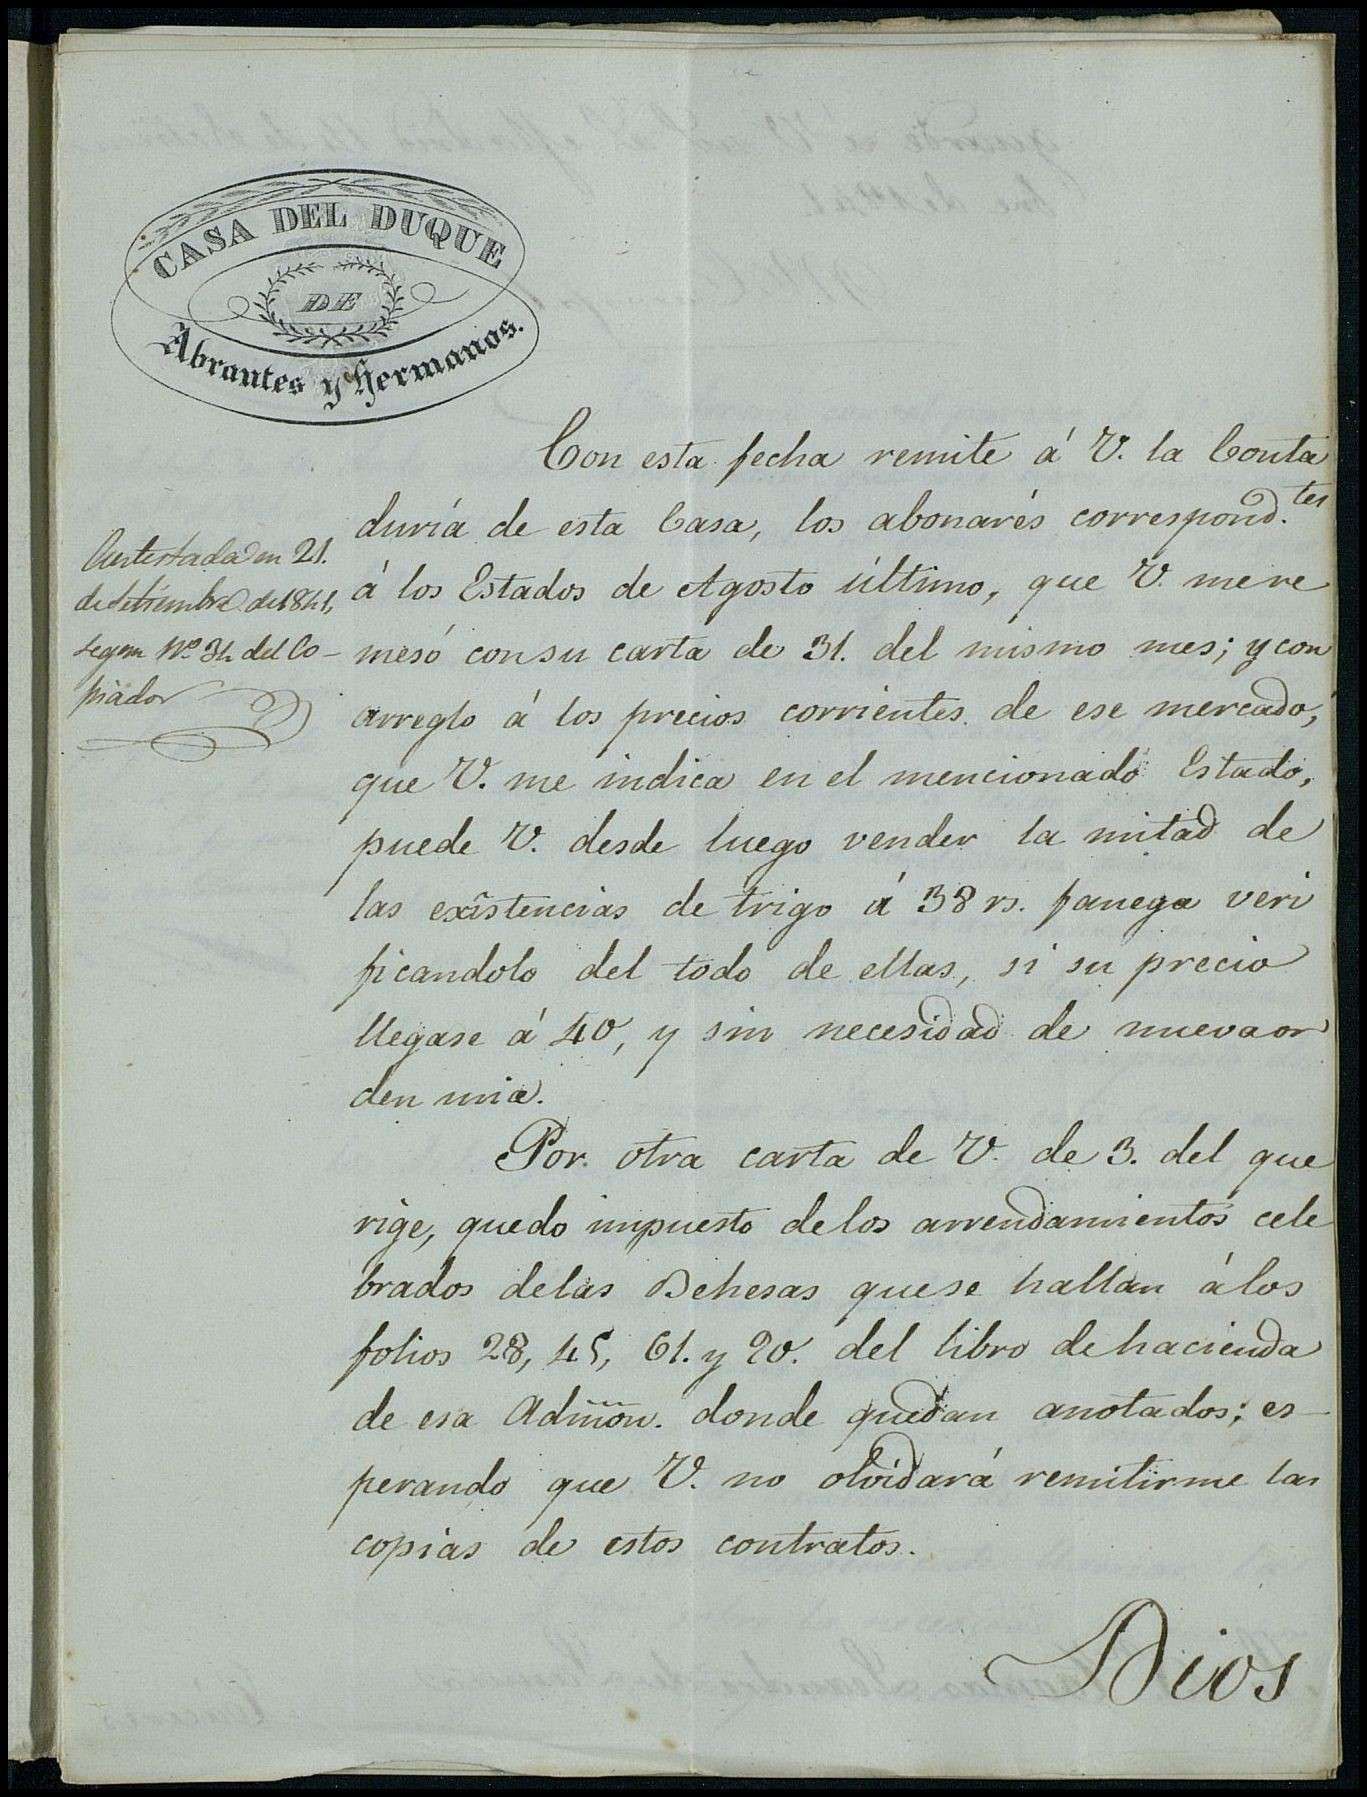 CASA DEL DUQUE
DE
Abrantes y Hermanos.
Con esta fecha remite á V. la Conta
duría de esta Casa, los abonarés correspond.tes
á los Estados de Agosto último, que V. me re
mesó con su carta de 31. del mismo mes; y con
arreglo á los precios corrientes de ese mercado,
que V. me indica en el mencionado Estado,
puede V. desde luego vender la mitad de
las existencias de trigo á 38 rs. fanega veri
ficandolo del todo de ellas, si su precio
llegase á 40, y sin necesidad de nueva or
den mia.
Por otra carta de V. de 3. del que
rige, quedo impuesto de los arrendamientos cele
brados de las Dehesas que se hallan á los
folios 28, 45, 61. y 90. del libro de hacienda
de esa Admon. donde quedan anotados; es-
perando que V. no olvidará remitirme las
copias de estos contratos.
Dios
Contestada en 21.
de Setiembre de 1841,
segun Nº 34 del Co-
piador